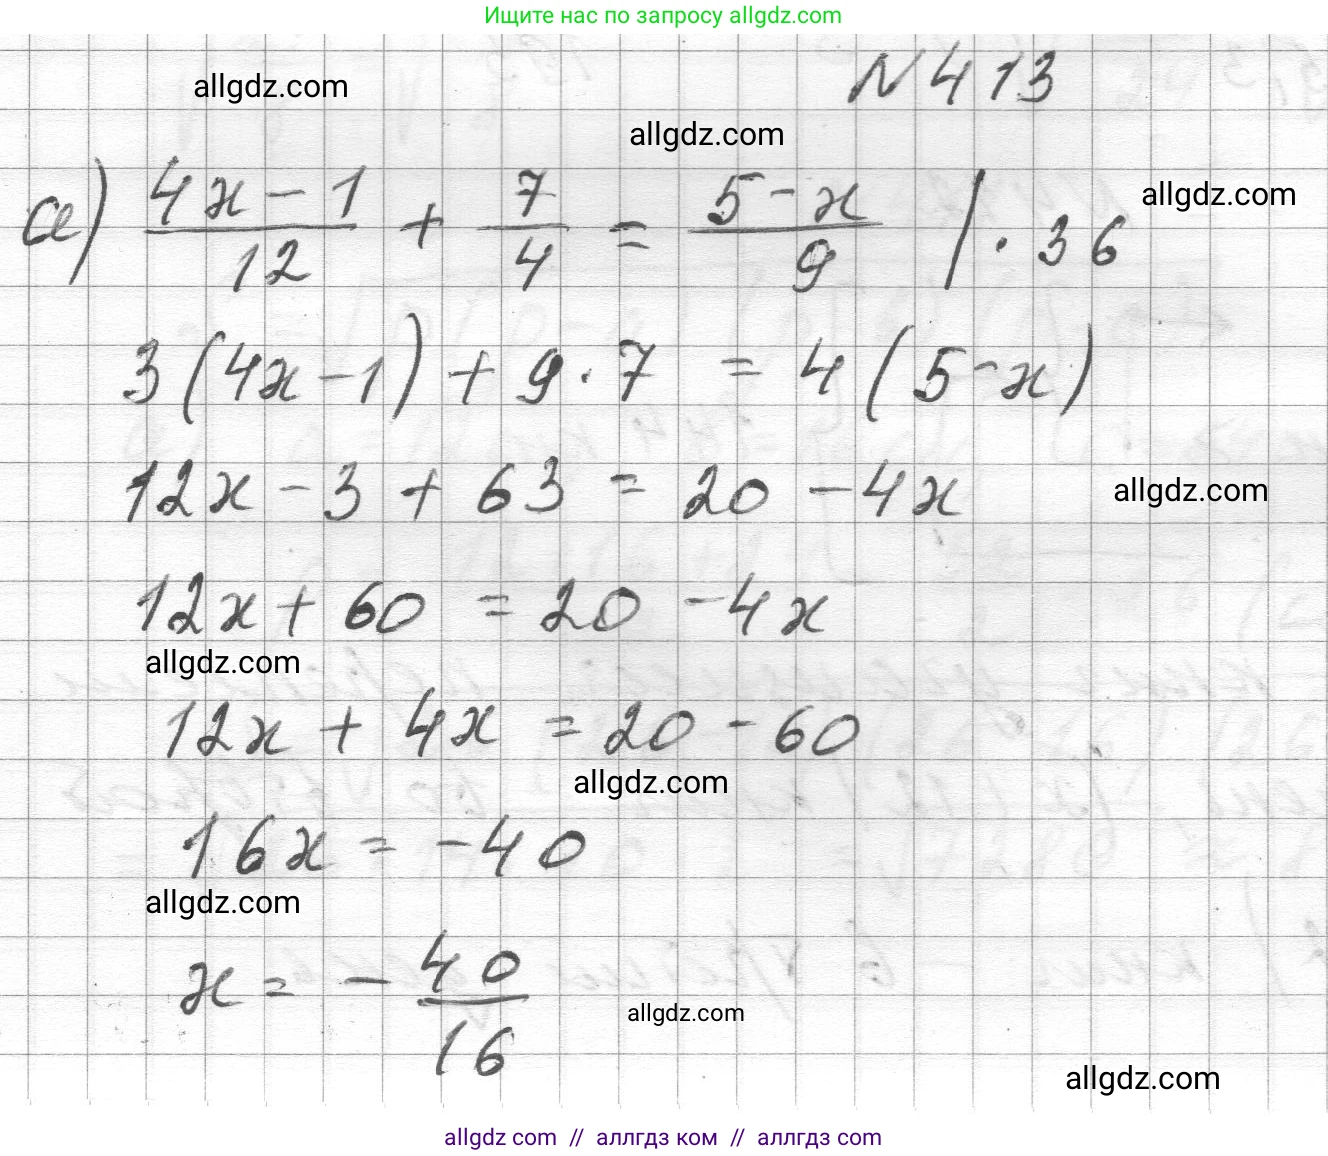 Ищите нас по запросу allgdz.com
allgdz.com
N 413
allgdz.com
а) (4x - 1)/12 + 7/4 = (5 - x)/9 | · 36
allgdz.com
3(4x - 1) + 9 · 7 = 4(5 - x)
12x - 3 + 63 = 20 - 4x
allgdz.com
12x + 60 = 20 - 4x
allgdz.com
12x + 4x = 20 - 60
allgdz.com
16x = -40
allgdz.com
x = - 40/16
allgdz.com
allgdz.com
allgdz com // аллгдз ком // аллгдз com